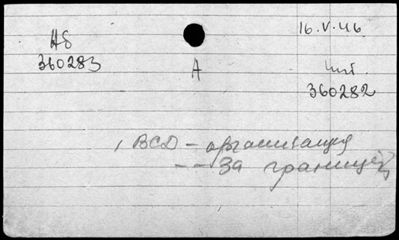 HS
360283
A
16.V.46
360282
ВСД - организация
-- За границей